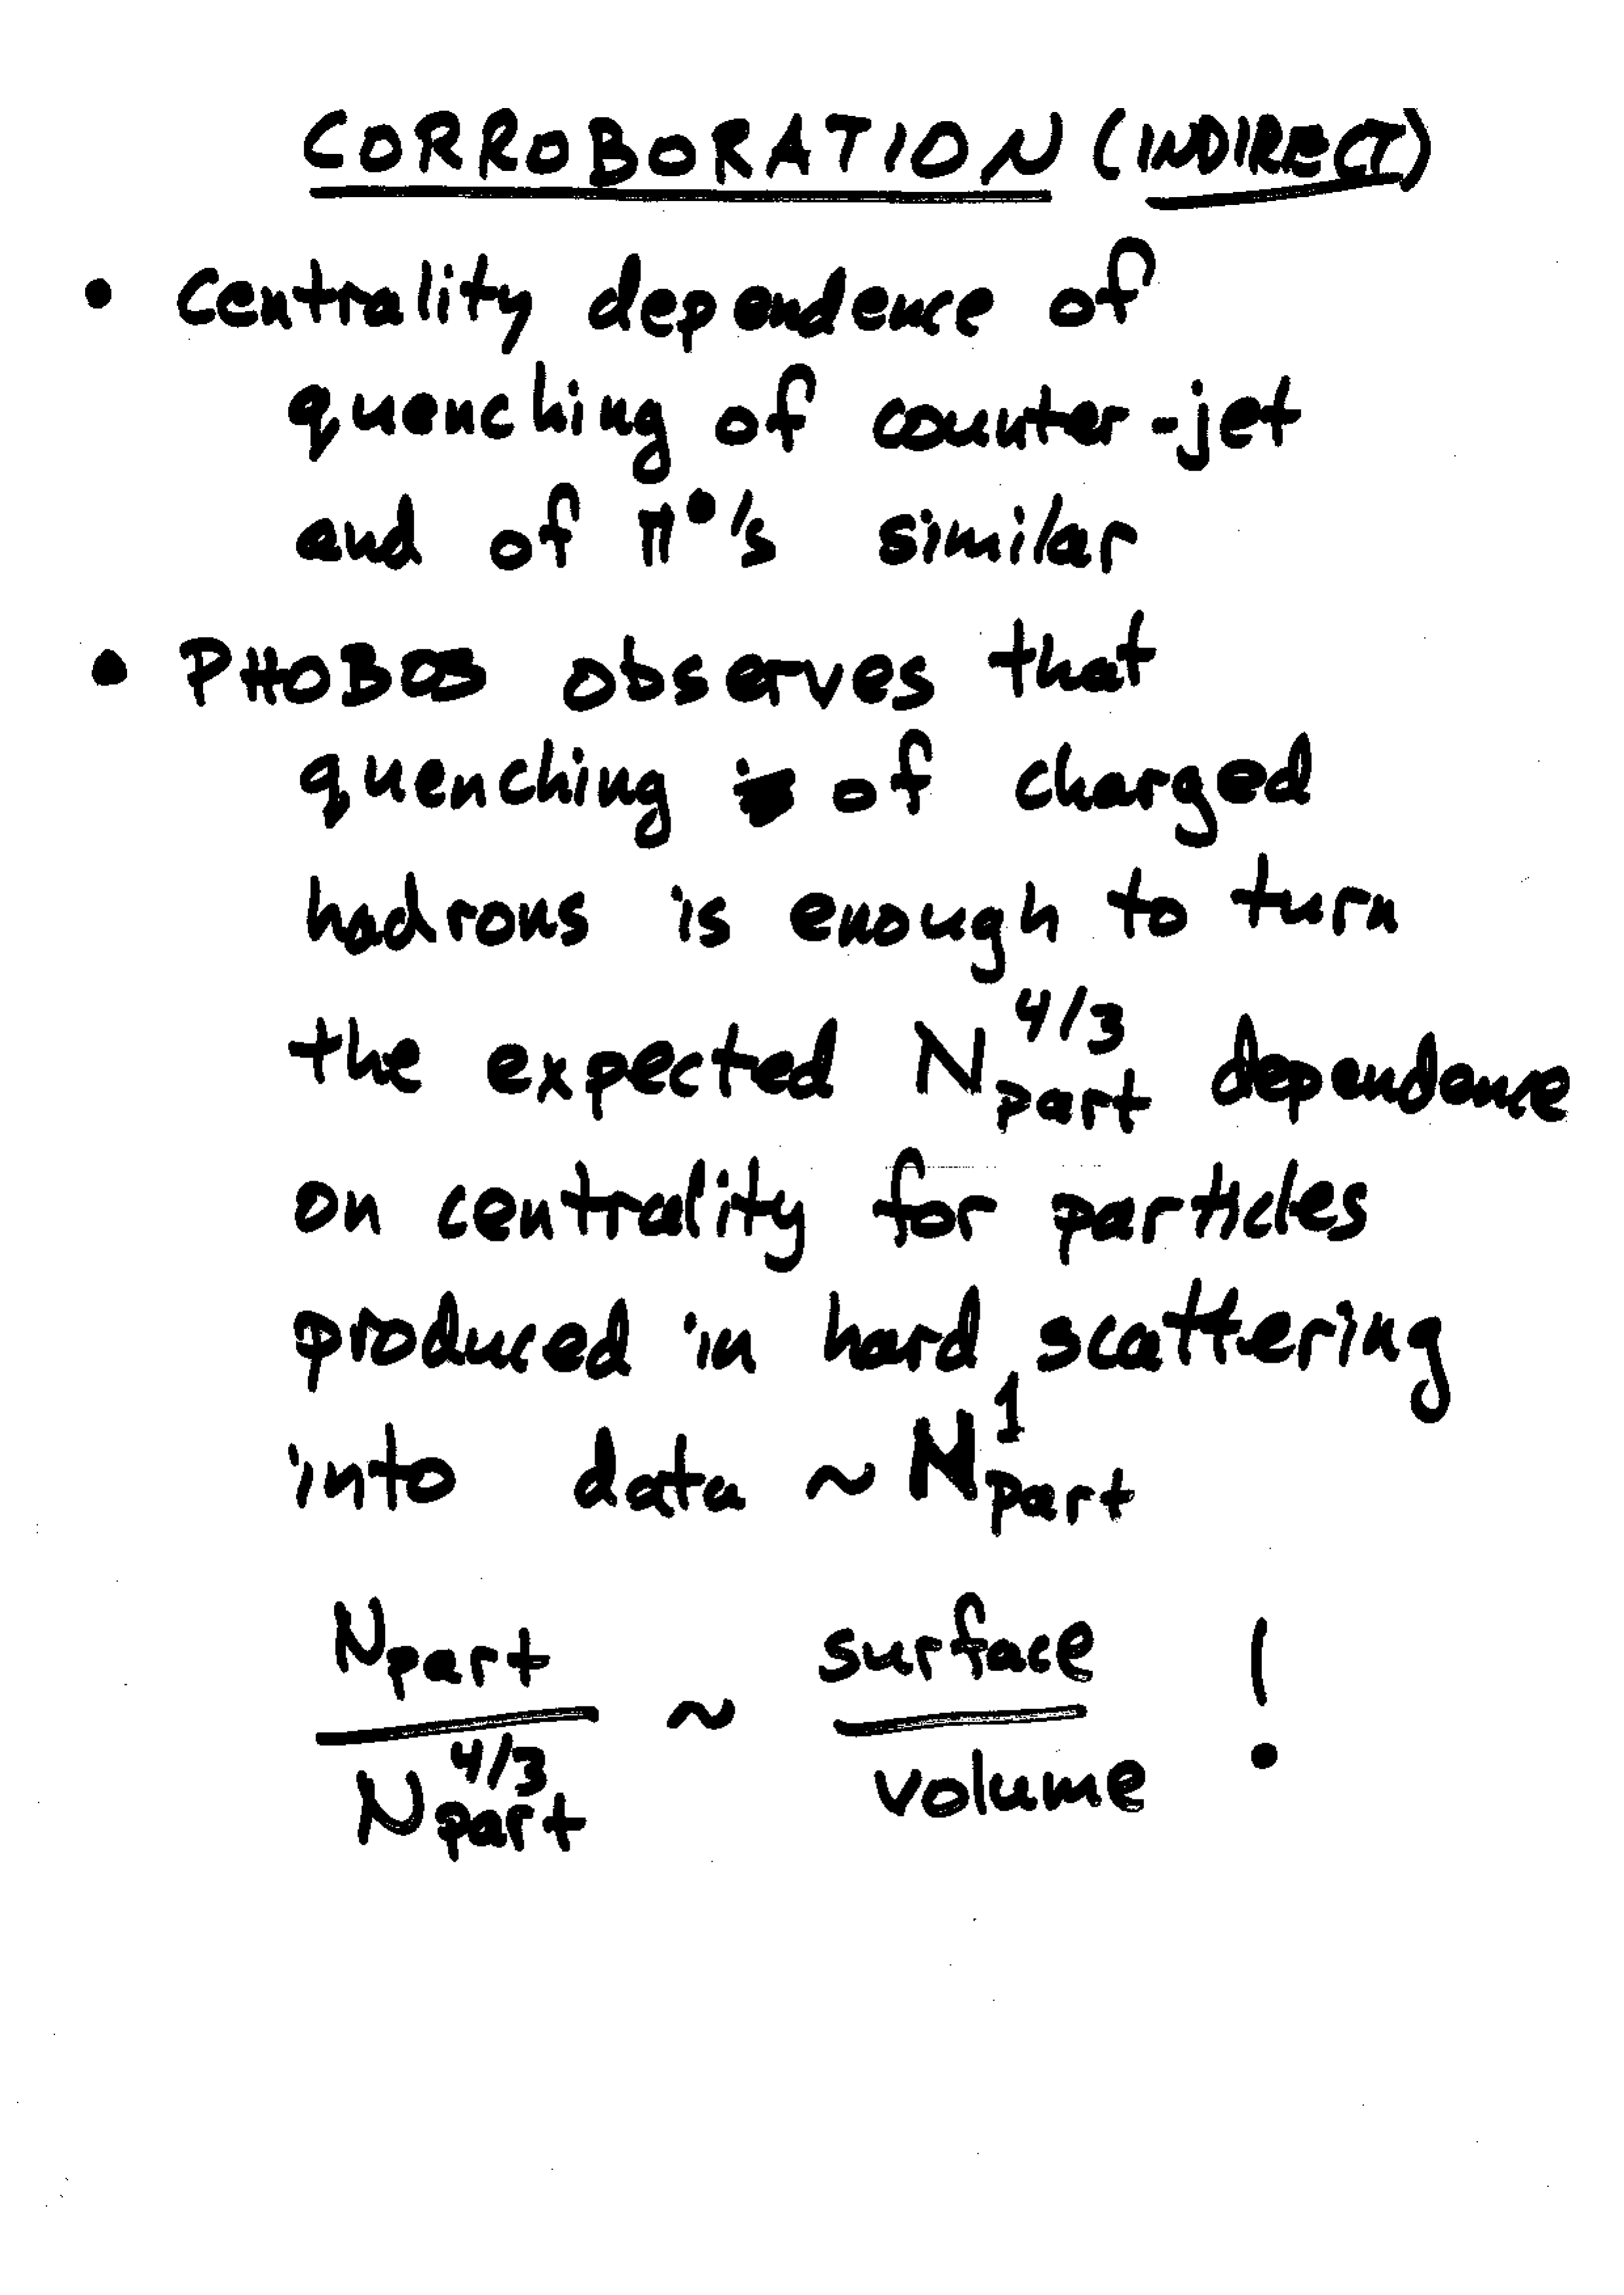 CORROBORATION (INDIRECT)
• Centrality dependence of
quenching of counter-jet
and of π⁰'s similar
• PHOBOS observes that
quenching of charged
hadrons is enough to turn
the expected N_part^4/3 dependence
on centrality for particles
produced in hard scattering
into data ~ N_part^1
N_part / N_part^4/3 ~ surface / volume !